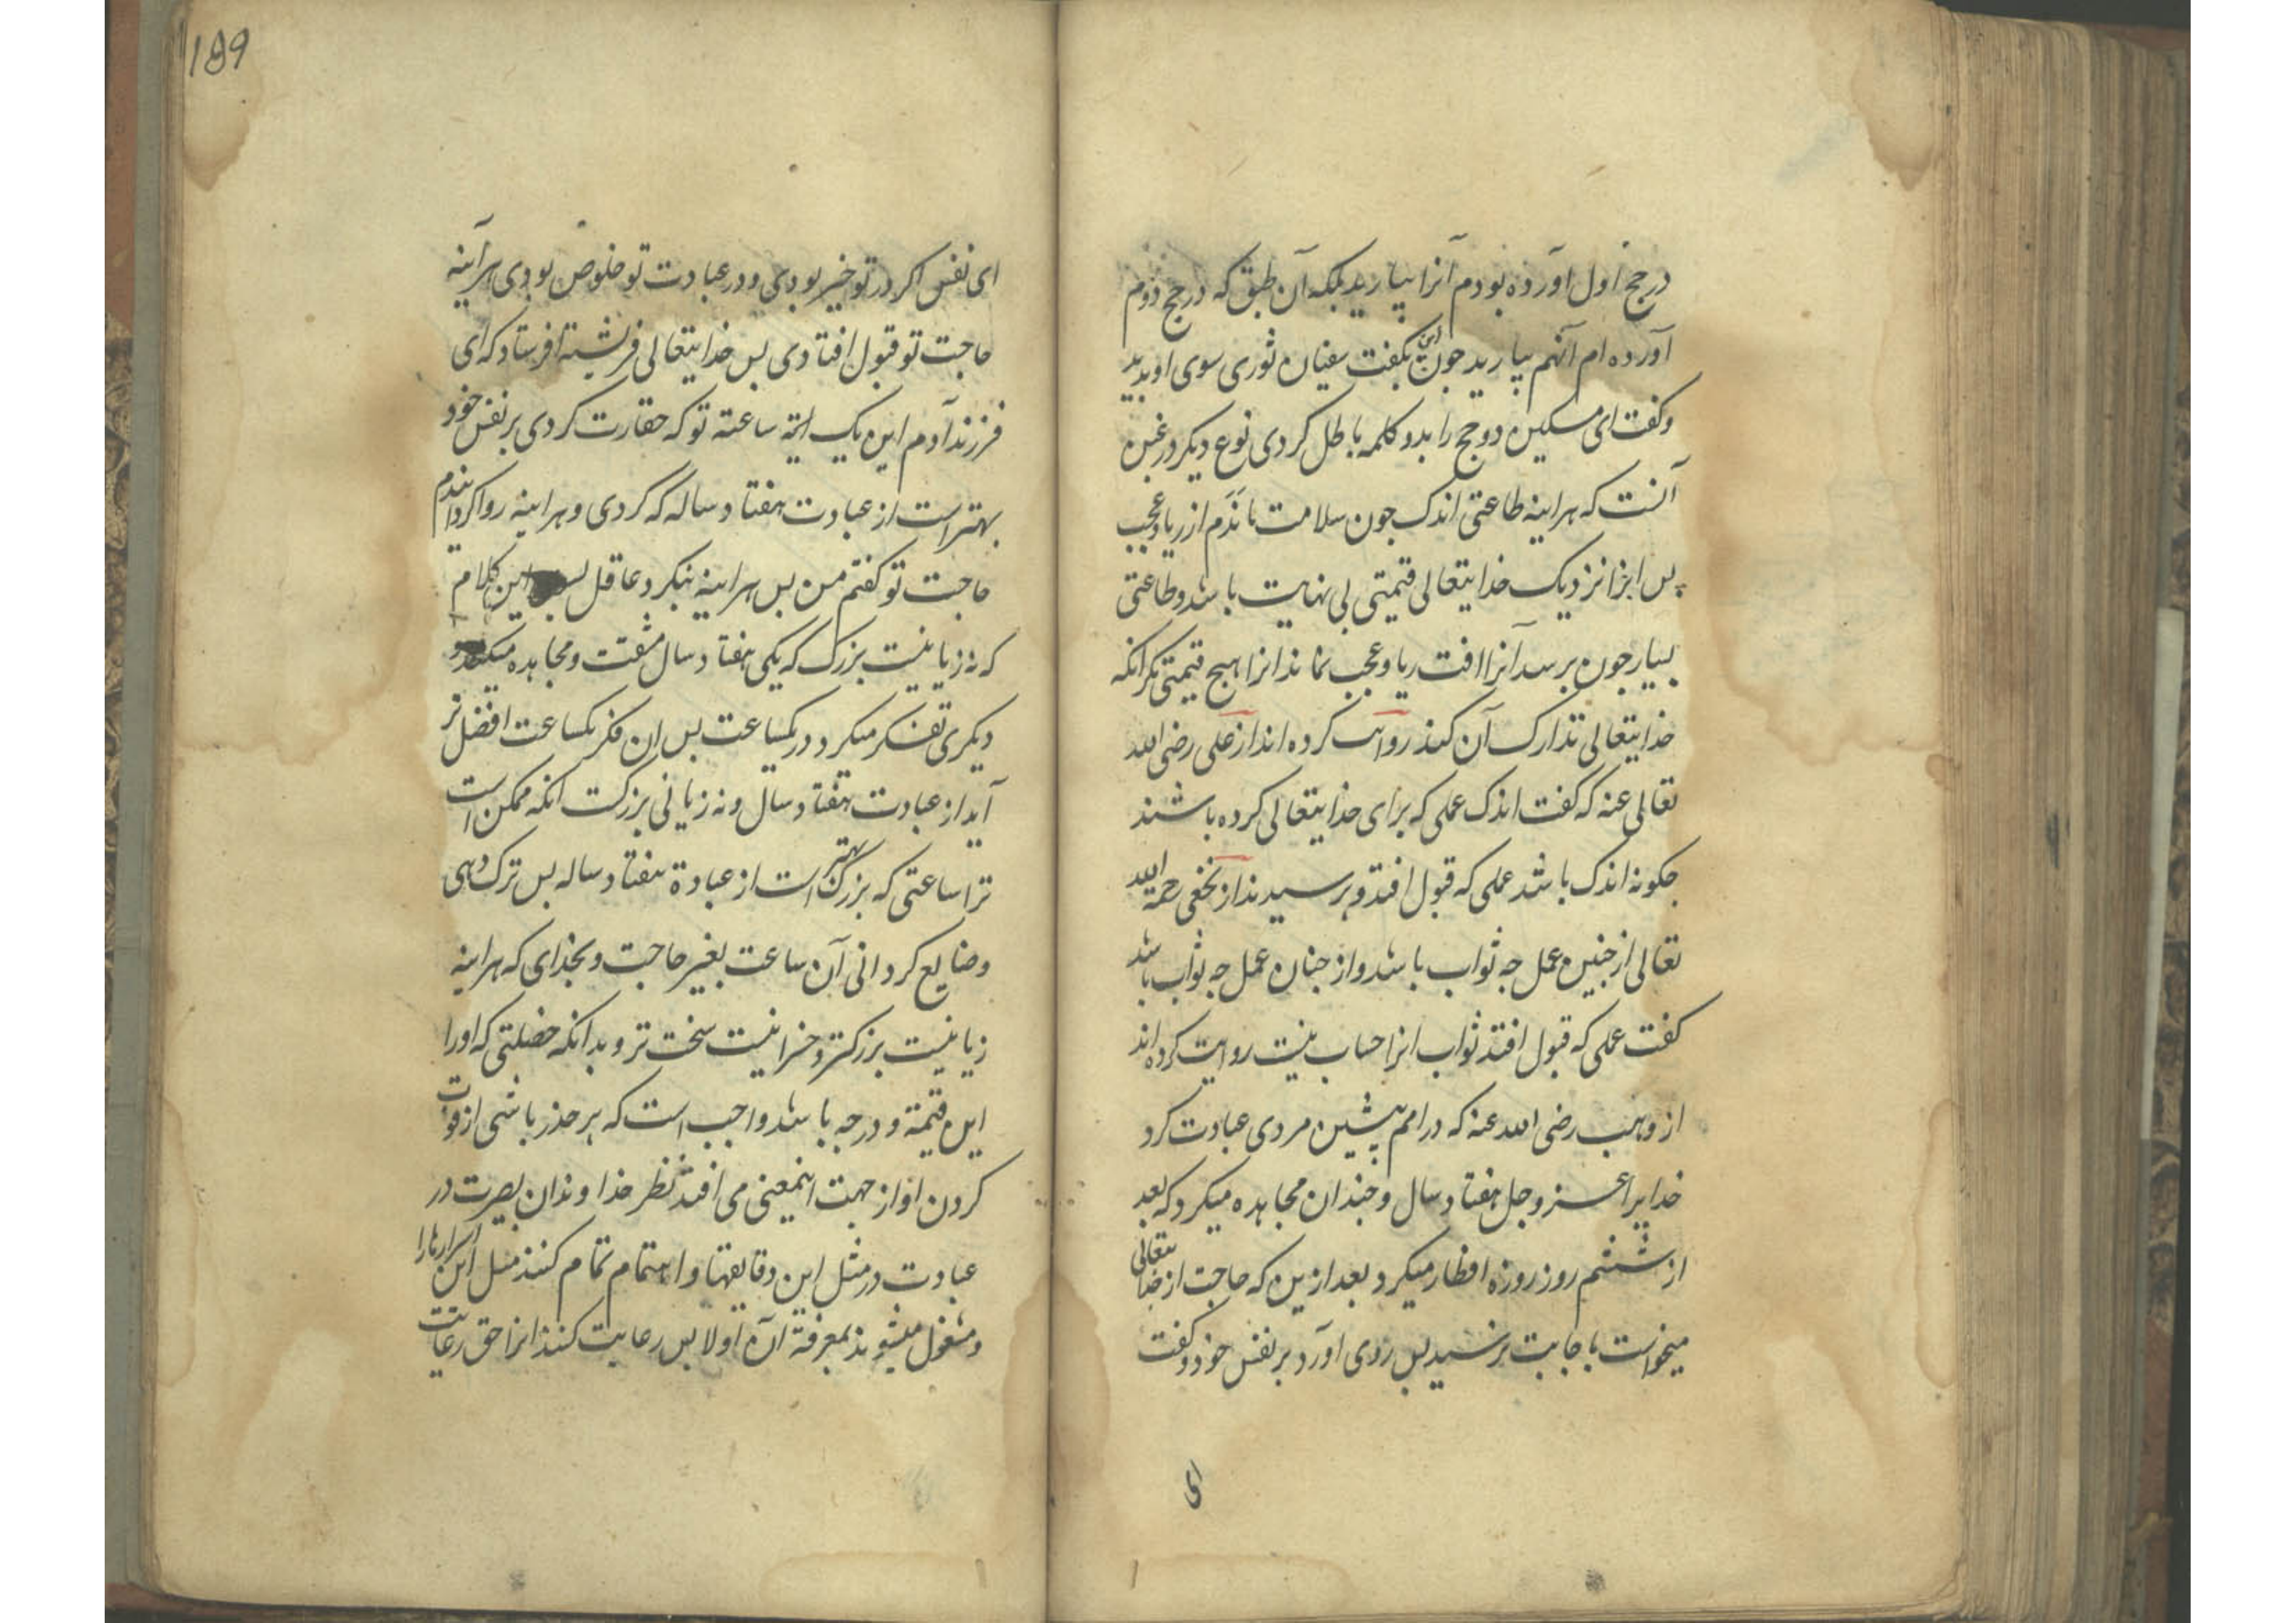 در حج اول آورده بودم آنرا بیارید بلکه آن طبق که در حج دوم
آورده ام آنهم بیارید جون این بکفت سفیان ثوری سوی او بدید
وکفت ای مسکین دو حج را بدو کلمه باطل کردی نوع دیکر در غبن
آنست که هراینه طاعتی اندک جون سلامت ماند از ریا وعجب
پس انرا نزدیک خدایتعالی قیمتی بی نهایت باشد وطاعتی
بسیار جون برسد آنرا افت ریا وعجب نماند انرا هیج قیمتی مکر انکه
خدایتعالی تدارک آن کند روایت کرده اند از علی رضی الله
تعالی عنه که کفت اندک عملی که برای خدایتعالی کرده باشند
جکونه اندک باشد عملی که قبول افتد و پرسیدند از نخعی رحمه الله
تعالی از جنین عمل جه ثواب باشد واز جنان عمل جه ثواب باشد
کفت عملی که قبول افتد ثواب انرا حساب نیست روایت کرده اند
از وهب رضی الله عنه که در امم پیشین مردی عبادت کرد
خدایرا عز وجل هفتاد سال وجندان مجاهده میکرد که بعد
از ششم روز روزه افطار میکرد بعد ازین که حاجت از خدایتعالی
میخواست باجابت نرسید بس روی آورد بر نفس خود وکفت
ای
189
ای نفس اکر در تو خیر بودی ودر عبادت تو خلوص بودی هرآینه
حاجت تو قبول افتادی بس خدایتعالی فریشته افرستاد که ای
فرزند آدم این یک ساعته تو که حقارت کردی بر نفس خود
بهتر است از عبادت هفتاد ساله که کردی وهراینه روا کردانیدم
حاجت تو کفتم من بس هراینه بنکرد عاقل این کلام
که نه زیانیست بزرک که یکی هفتاد سال مشقت ومجاهده میکند و
دیکری تفکر میکرد در یکساعت بس ان فکر یکساعت افضل تر
آید از عبادت هفتاد سال ونه زیانی بزرکست انکه ممکن است
ترا ساعتی که بزرکتر بهتر است از عبادة هفتاد ساله بس ترک دهی
وضایع کردانی آن ساعت بغیر حاجت وبخدای که هراینه
زیانیست بزرکتر وخسرانیست سخت تر وبدانکه خصلتی که اورا
این قیمة ودرجه باشد واجب است که بر حذر باشی از فوت
کردن او از جهت اینمعنی می افتد نظر خداوندان بصیرت در
عبادت در مثل این دقایقها واهتمام تمام کنند مثل این اسرارها را
ومشغول میشوند بمعرفة آن اولا بس رعایت کنند انرا حق رعایت